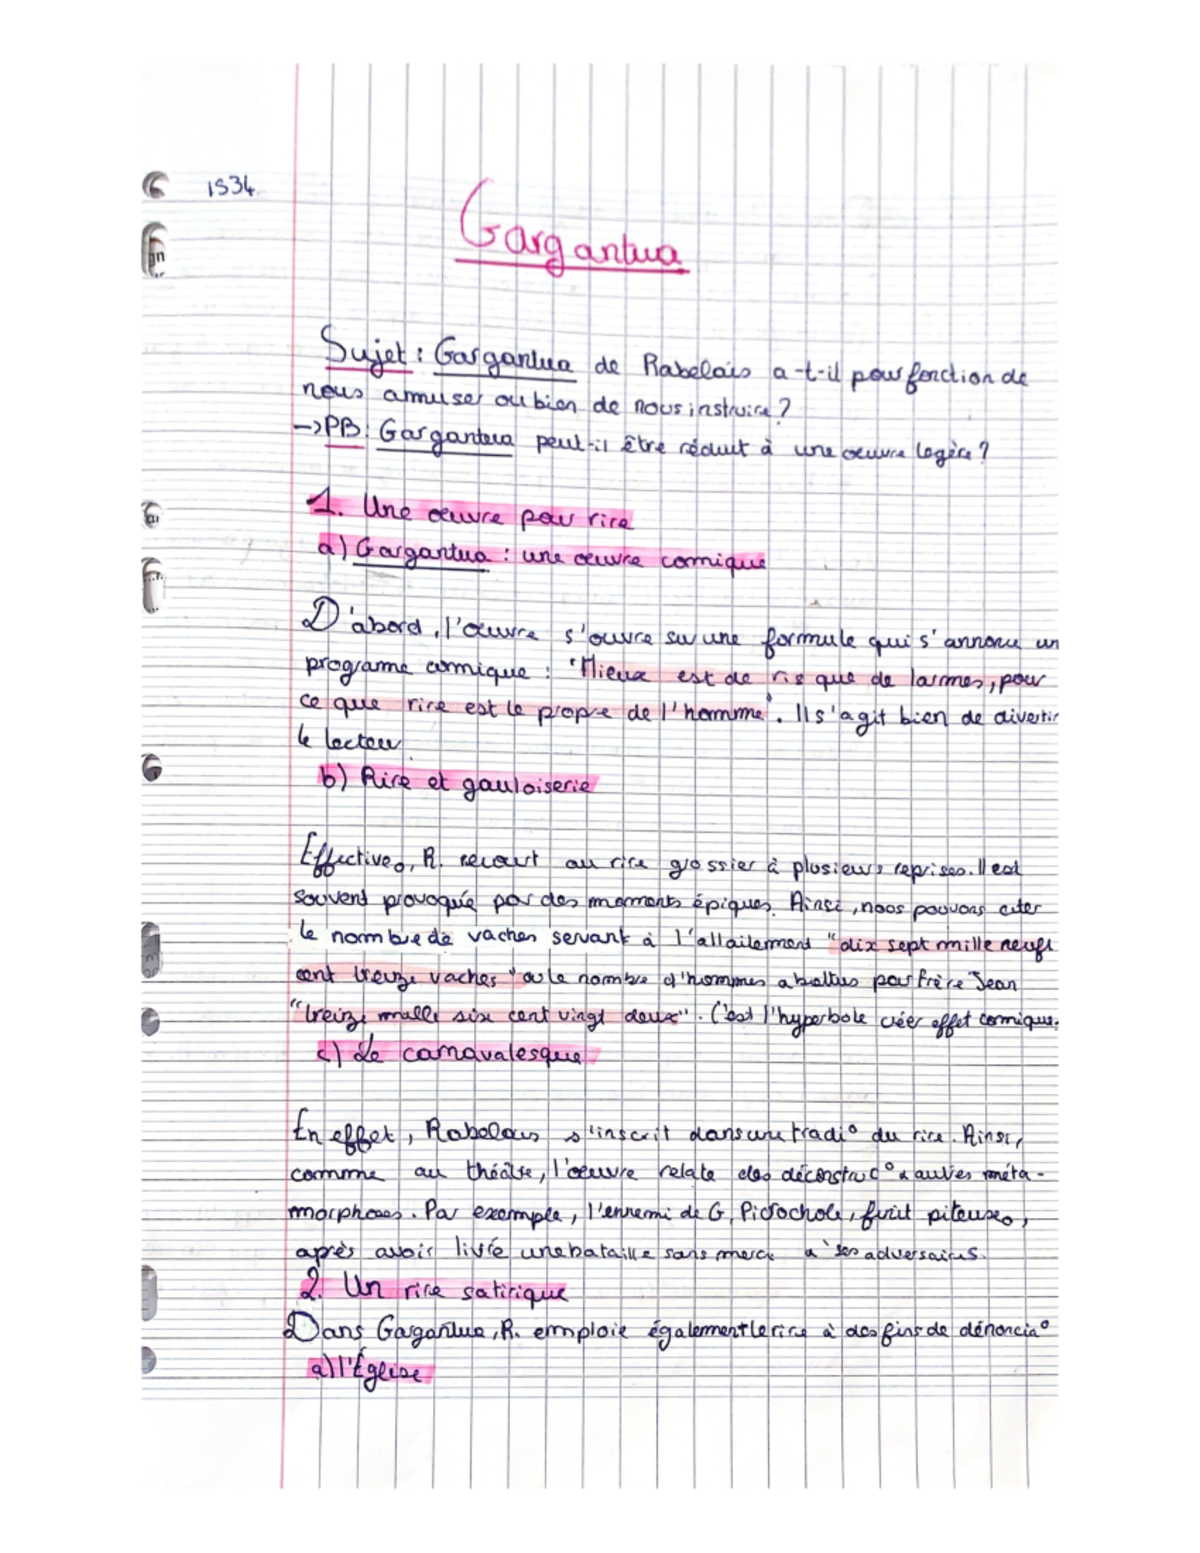 1534
Gargantua
Sujet : Gargantua de Rabelais a-t-il pour fonction de
nous amuser ou bien de nous instruire ?
->PB: Gargantua peut-il être réduit à une œuvre legère ?
1. Une œuvre pour rire
a) Gargantua : une œuvre comique
D'abord, l'œuvre s'ouvre su une formule qui s'annonce un
programe comique : "Mieux est de ris que de larmes, pour
ce que rire est le propre de l'homme". Il s'agit bien de divertir
le lecteur
b) Rire et gauloiserie
Effective°, R. recourt au rire grossier à plusieurs reprises. Il est
souvent provoquée par des moments épiques. Ainsi, nous pouvons citer
le nombre de vaches servant à l'allaitement "dix sept mille neuf
cent treize vaches" ou le nombre d'hommes abattus par frère Jean
"treize mille six cent vingt deux". C'est l'hyperbole créer effet comique.
c) Le carnavalesque
En effet, Rabelais s'inscrit dans une tradi° du rire. Ainsi,
comme au théâtre, l'œuvre relate des déconstruc° & autres méta-
morphoses. Par exemple, l'ennemi de G, Picrochole, finit piteuse°,
après avoir livrée une bataille sans merci à ses adversaires.
2. Un rire satirique
Dans Gargantua, R. emploie également le rire à des fins de dénoncia°
a) l'Église